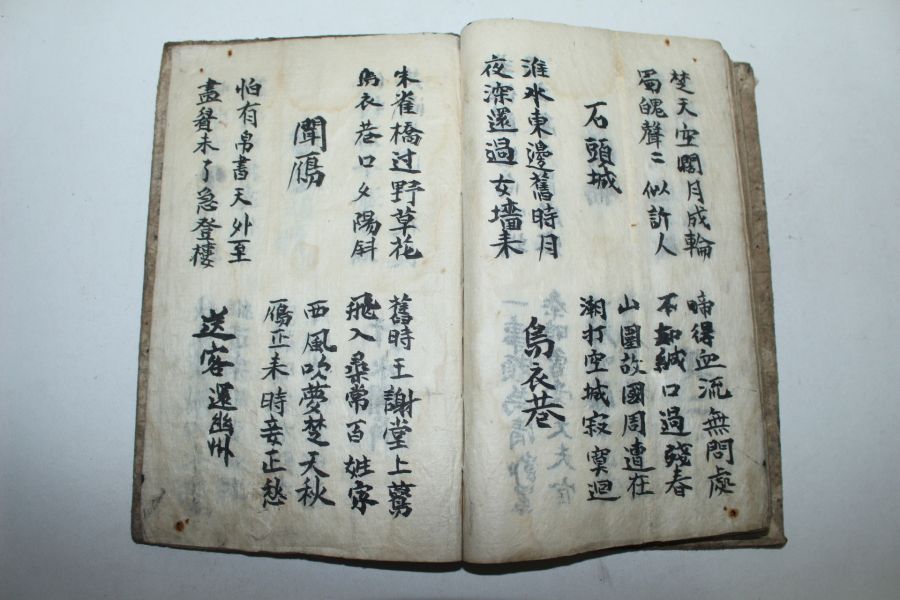 楚天空闊月成輪
蜀魄聲〻似許人
啼得血流無問處
不却緘口過殘春
石頭城
山圍故國周遭在
潮打空城寂寞迴
淮水東邊舊時月
夜深還過女墻来
烏衣巷
朱雀橋过野草花
烏衣巷口夕陽斜
舊時王謝堂上鷰
飛入尋常百姓家
聞鴈
西風吹夢楚天秋
鴈正来時妾正愁
怕有帛書天外至
未了急登樓
送客還幽州